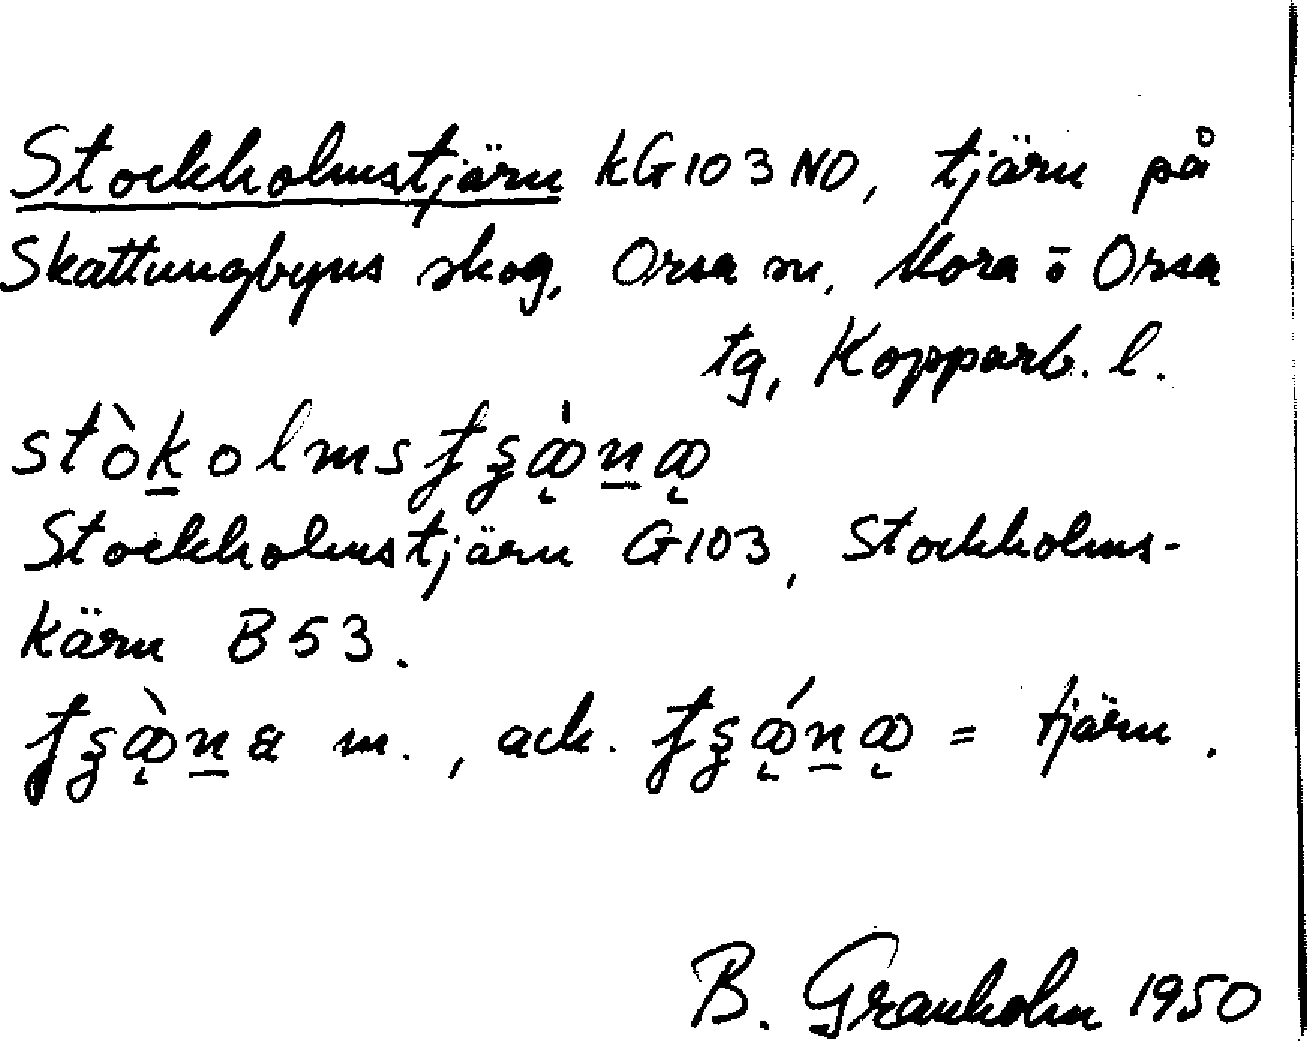 Stockholmstjärn kG103NO, tjärn på
Skattungbyns skog, Orsa sn, Mora o Orsa
tg, Kopparb. l.
Stockholmstjärn G103, Stockholms-
kärn B53.
m., ack. = tjärn.
B. Granholm 1950